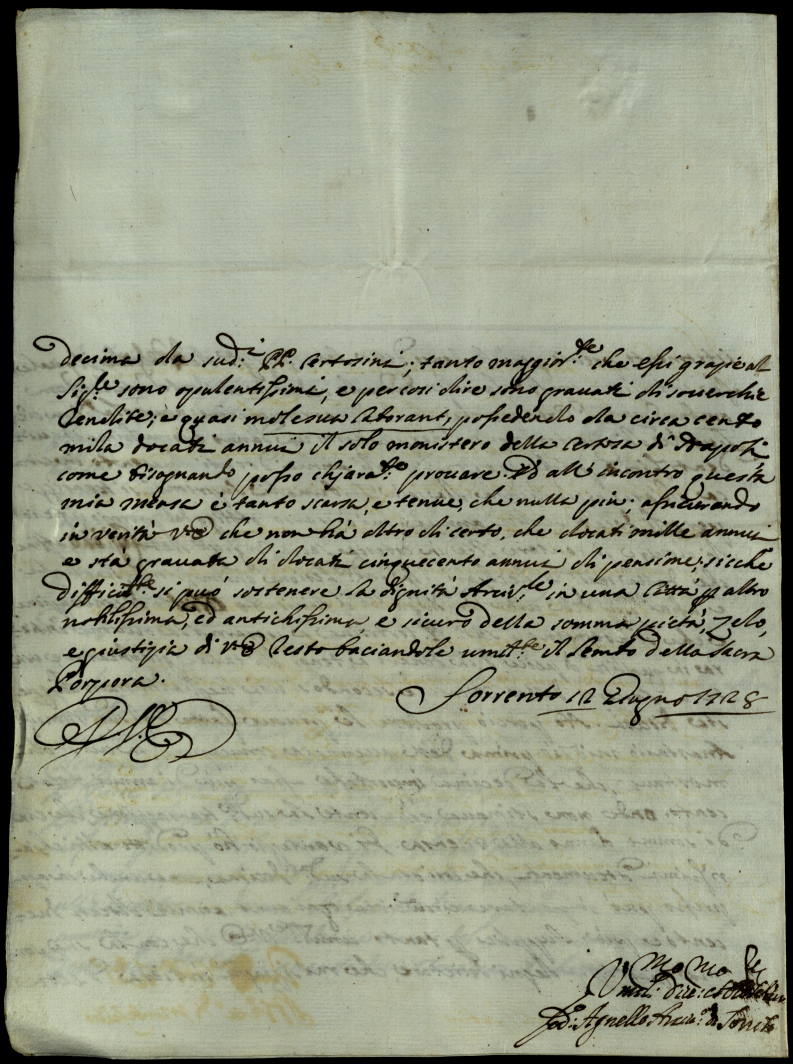 decima da sud.i PP. Certosini; tanto maggior.te che essi grazie al
Sig.re sono opulentissimi, e per cosi dire sono gravati di soverchie
rendite; e quasi mole sua laborant, possedendo da circa cento
mila docati annui il solo monistero della Certosa di Napoli
come bisognando posso chiaram.te provare. Ed all' incontro questa
mia mensa è tanto scarsa, e tenue, che nulla più; assicurando
in verità V.E. che non hà altro di certo, che docati mille annui
e stà gravata di docati cinquecento annui di pensione; sicche
difficilm.te si può sostenere la dignità Arciv.le in una Città p altro
nobilissima, ed antichissima, e sicuro della somma pietà, zelo,
e giustizia di V.E. resto baciandole umilm.te il lembo della Sacra
Porpora.
Sorrento 12 Giugno 1728
Umil.mo Dev.mo
fr. d. Agnello Arciv.o di Sorr.to